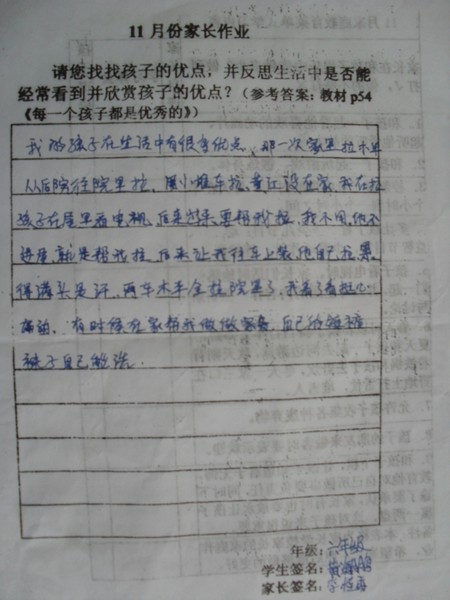 11月份家长作业
请您找找孩子的优点，并反思生活中是否能
经常看到并欣赏孩子的优点？（参考答案：教材p54
《每一个孩子都是优秀的》）
我的孩子在生活中有很多优点。那一次家里拉木
从后院往院里拉，用小推车拉，在家，我在拉
孩子在屋里看电视，后来出来要帮我拉，我不用，他不
就是帮我拉，后来让我往车上装，他自己拉，累
得满头是汗，两车木半全拉院里了，我看了看挺心
痛的，有时候在家帮我做做家务，自己的
袜子自己能洗。
年级：六年级
学生签名：
家长签名：